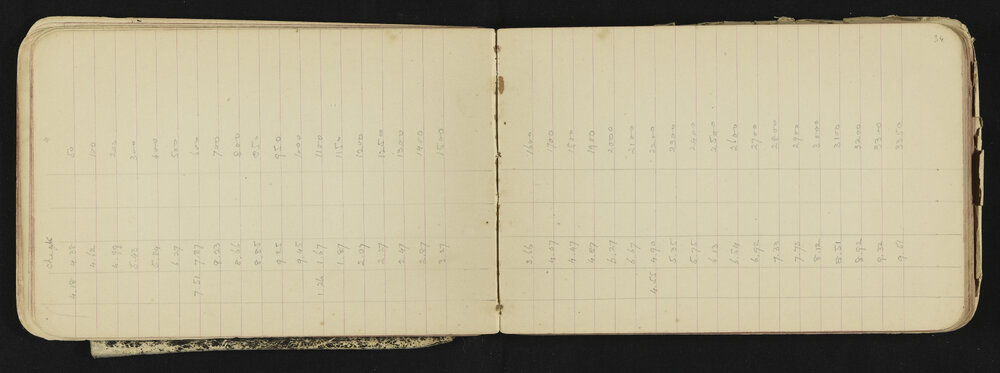 34
check
4.18 4.38 50
4.62 100
4.99 200
300
5.84 400
6.27 500
7.51 7.87 600
8.23 700
8.66 800
8.85 850
9.25 950
9.45 1000
1.26 1.67 1100
1.87 1150
2.07 1200
2.27 1250
2.47 1300
2.87 1400
3.27 1500
3.66 1600
4.07 1700
4.47 1800
4.87 1900
6.27 2000
6.67 2100
4.55 4.90 2200
5.35 2300
5.75 2400
6.13 2500
6.54 2600
6.92 2700
7.33 2800
7.72 2900
8.12 3000
8.51 3100
8.92 3200
9.32 3300
9.51 3350